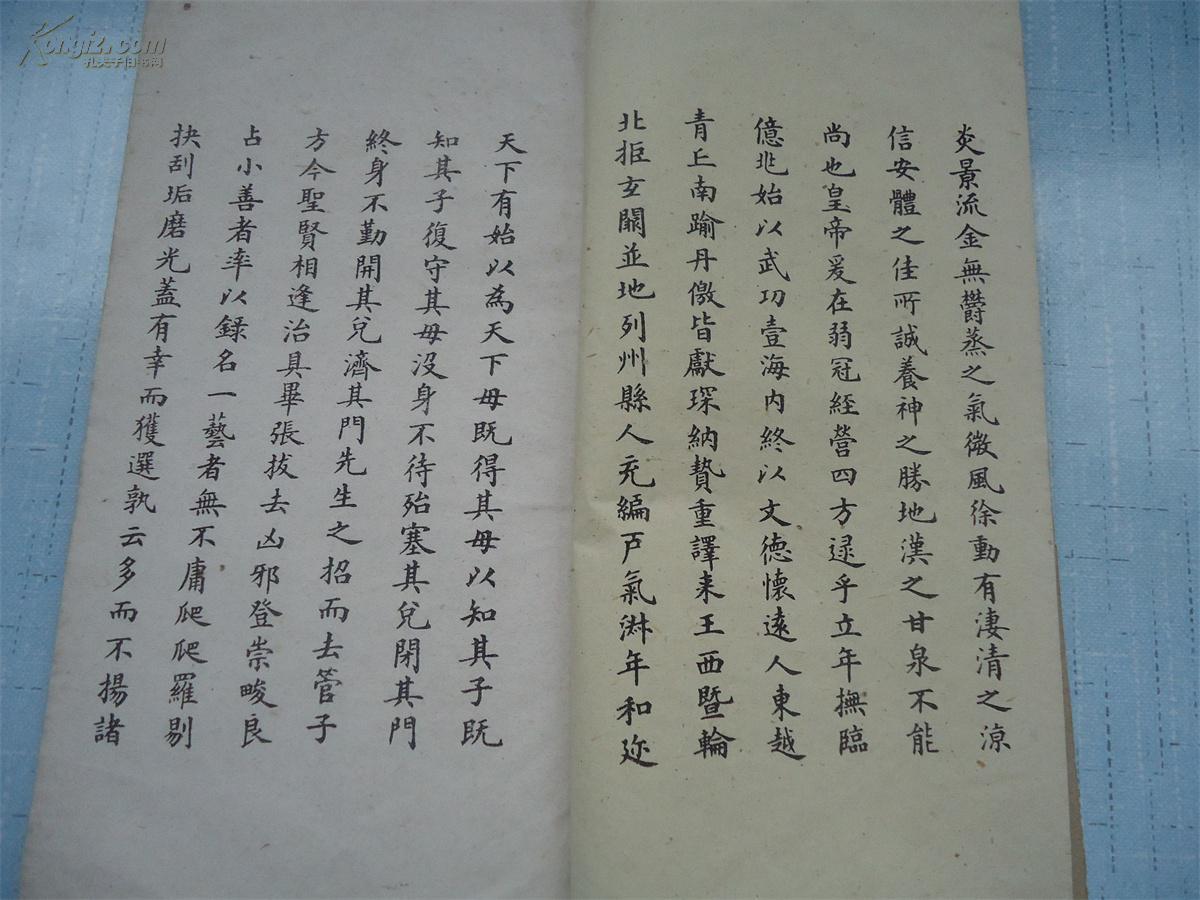 炎景流金無欝蒸之氣微風徐動有淒清之涼
信安體之佳所誠養神之勝地漢之甘泉不能
尚也皇帝爰在弱冠経營四方逯乎立年撫臨
億兆始以武功壹海内終以文德懷遠人東越
青丘南踰丹儌皆獻琛納贄重譯来王西暨輪
北拒玄闕並地列州縣人充編戸氣淋年和迩
天下有始以為天下母既得其母以知其子既
知其子復守其母没身不待殆塞其兌閉其門
終身不勤開其兌濟其門先生之招而去管子
方今聖賢相逢治具畢張拔去凶邪登崇畯良
占小善者率以録名一藝者無不庸爬爬羅剔
抉刮垢磨光蓋有幸而獲選孰云多而不揚諸
Kongfz.com
孔夫子旧书网